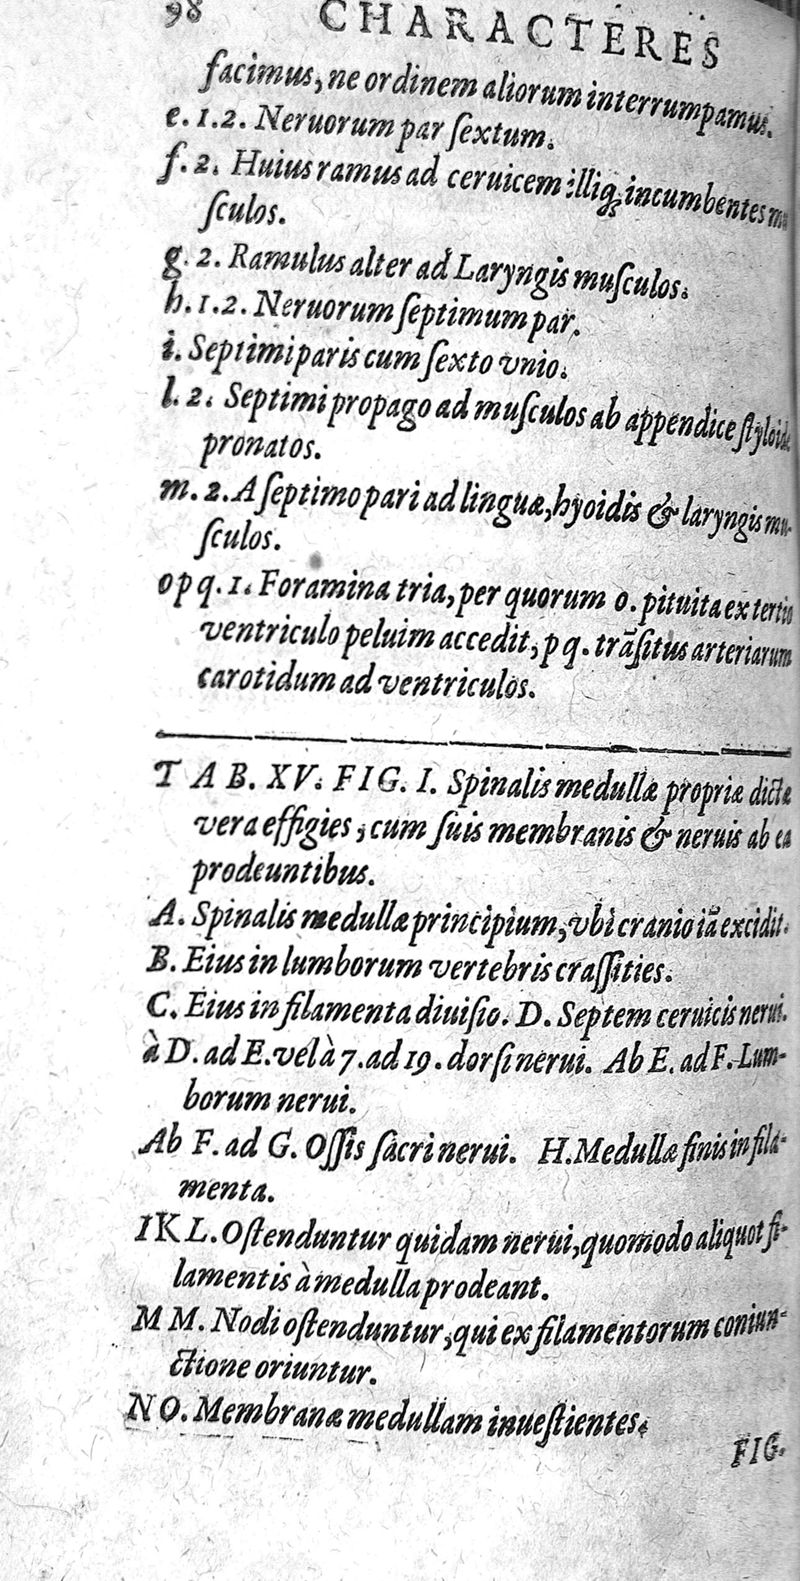 98 CHARACTERES
facimus, ne ordinem aliorum interrumpamus.
e. 1. 2. Neruorum par ſextum.
f. 2. Huius ramus ad ceruicem illiqꝫ incumbentes mu
ſculos.
g. 2. Ramulus alter ad Laryngis muſculos.
h. 1. 2. Neruorum ſeptimum par.
i. Septimi paris cum ſexto vnio.
l. 2. Septimi propago ad muſculos ab appendice ſtyloide
pronatos.
m. 2. A ſeptimo pari ad linguæ, hyoidis & laryngis mu-
ſculos.
o p q. 1. Foramina tria, per quorum o. pituita ex tertio
ventriculo peluim accedit, p q. trãſitus arteriarum
carotidum ad ventriculos.
TAB. XV. FIG. I. Spinalis medullæ propriæ dictæ
vera effigies, cum ſuis membranis & neruis ab ea
prodeuntibus.
A. Spinalis medullæ principium, vbi cranio iã excidit.
B. Eius in lumborum vertebris craſſities.
C. Eius in filamenta diuiſio. D. Septem ceruicis nerui.
à D. ad E. vel à 7. ad 19. dorſi nerui. Ab E. ad F. Lum-
borum nerui.
Ab F. ad G. Oſſis ſacri nerui. H. Medullæ finis in fila-
menta.
IKL. Oſtenduntur quidam nerui, quomodo aliquot fi-
lamentis à medulla prodeant.
M M. Nodi oſtenduntur, qui ex filamentorum coniun-
ctione oriuntur.
NO. Membranæ medullam inueſtientes.
FIG.